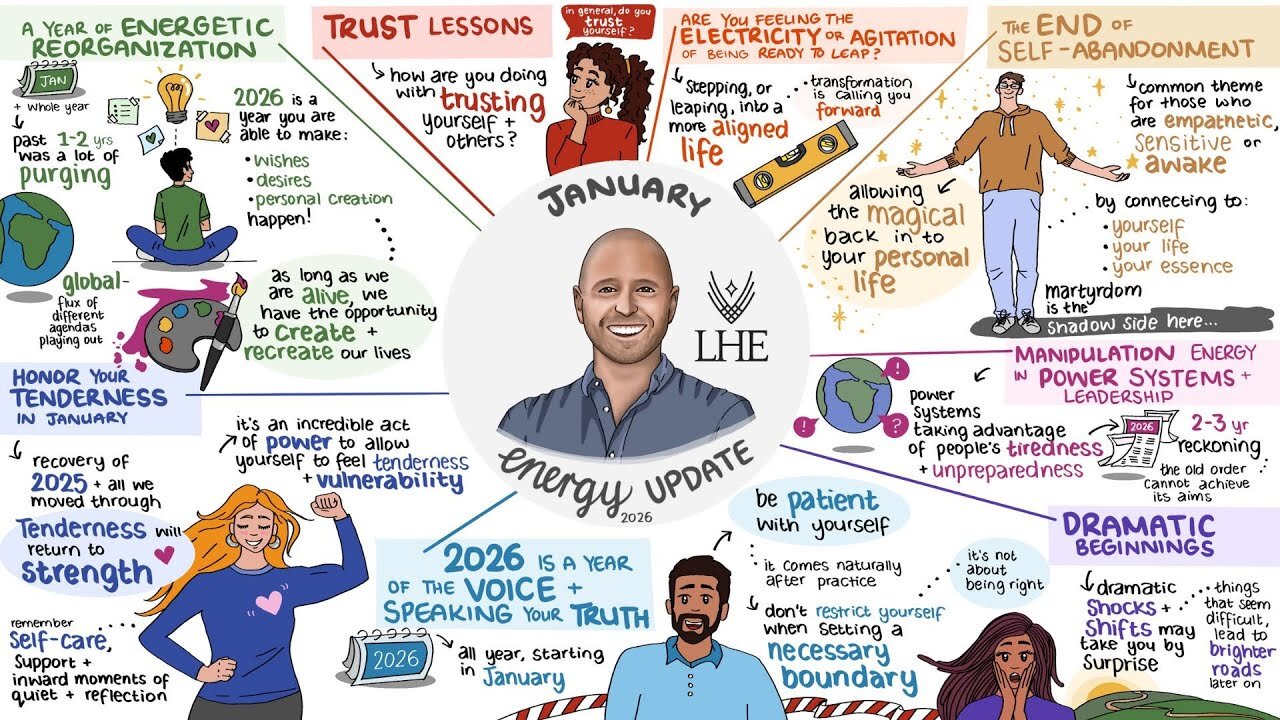 A YEAR OF ENERGETIC
REORGANIZATION
JAN
+ whole year
past 1-2 yrs
was a lot of
purging
2026 is a
year you are
able to make:
• wishes
• desires
• personal creation
happen!
global-
flux of
different
agendas
playing out
as long as we
are alive, we
have the opportunity
to create +
recreate our lives
TRUST LESSONS
how are you doing
with trusting
yourself +
others?
in general, do you
trust
yourself?
ARE YOU FEELING THE
ELECTRICITY OR AGITATION
OF BEING READY TO LEAP?
Stepping, or
leaping, into a
more aligned
life
transformation
is calling you
forward
THE END OF
SELF-ABANDONMENT
common theme
for those who
are empathetic,
sensitive or
awake
allowing
the magical
back in to
your personal
life
by connecting to:
• yourself
• your life
• your essence
martyrdom
is the
shadow side here...
JANUARY
LHE
energy UPDATE
2026
HONOR YOUR
TENDERNESS
IN JANUARY
recovery of
2025 + all we
moved through
it's an incredible act
of power to allow
yourself to feel tenderness
+ vulnerability
Tenderness will
return to
strength
remember
Self-care,
Support +
inward moments of
quiet + reflection
2026 IS A YEAR
OF THE VOICE +
SPEAKING YOUR TRUTH
2026
all year, starting
in January
be patient
with yourself
it comes naturally
after practice
don't restrict yourself
when setting a
necessary
boundary
it's not
about
being right
MANIPULATION ENERGY
IN POWER SYSTEMS +
LEADERSHIP
! ! ?
power
systems
taking advantage
of people's tiredness
+ unpreparedness
2026
2-3 yr
reckoning
the old order
cannot achieve
its aims
DRAMATIC
BEGINNINGS
dramatic
Shocks +
Shifts may
take you by
Surprise
things
that seem
difficult,
lead to
brighter
roads
later on